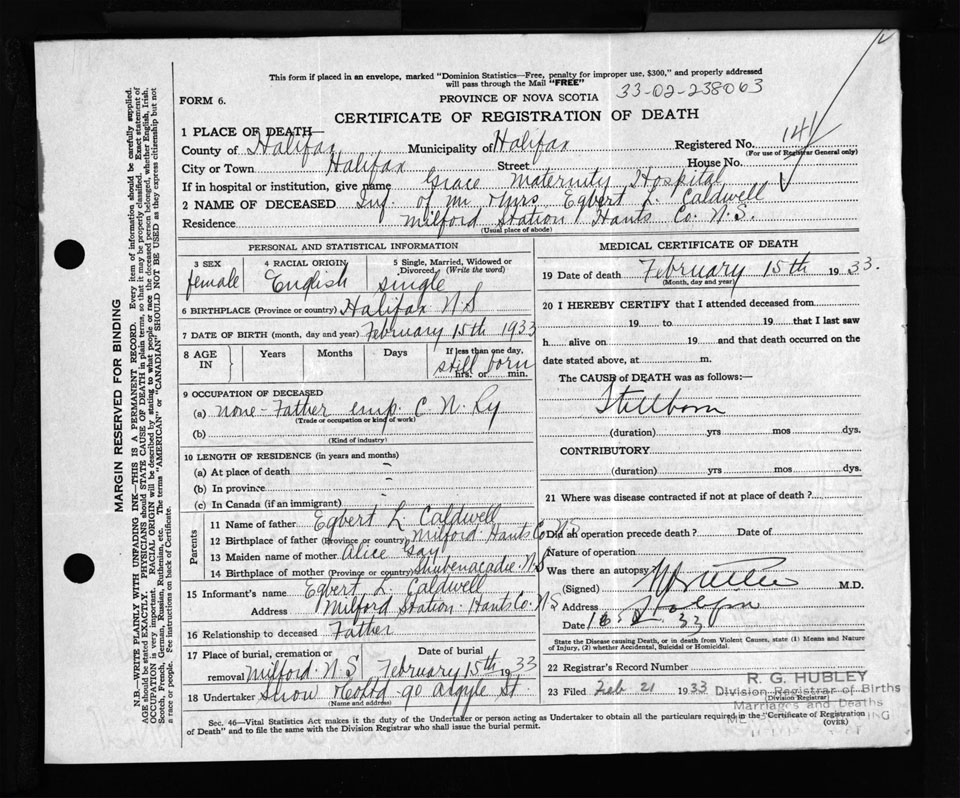 This form if placed in an envelope, marked "Dominion Statistics—Free, penalty for improper use, $300," and properly addressed
will pass through the Mail "FREE"
FORM 6.
PROVINCE OF NOVA SCOTIA
33-02-238063
CERTIFICATE OF REGISTRATION OF DEATH
1 PLACE OF DEATH—
County of Halifax Municipality of Halifax Registered No. 141
(For use of Registrar General only)
City or Town Halifax Street House No.
If in hospital or institution, give name Grace Maternity Hospital
2 NAME OF DECEASED Inf. of Mr & Mrs Egbert L. Caldwell
Residence Milford Station Hants Co. N.S.
(Usual place of abode)
PERSONAL AND STATISTICAL INFORMATION
3 SEX 4 RACIAL ORIGIN 5 Single, Married, Widowed or
Divorced, (Write the word)
female English single
6 BIRTHPLACE (Province or country) Halifax N.S
7 DATE OF BIRTH (month, day and year) February 15th 1933
8 AGE IN Years Months Days If less than one day,
still born
hrs. or min.
9 OCCUPATION OF DECEASED
(a) none - Father emp. C. N. Ry
(Trade or occupation or kind of work)
(b)
(Kind of industry)
10 LENGTH OF RESIDENCE (in years and months)
(a) At place of death -
(b) In province -
(c) In Canada (if an immigrant) -
Parents
11 Name of father Egbert L Caldwell
12 Birthplace of father (Province or country) Milford Hants Co. N S
13 Maiden name of mother Alice Gay
14 Birthplace of mother (Province or country) Shubenacadie N.S
15 Informant's name Egbert L. Caldwell
Address Milford Station. Hants Co. N S
16 Relationship to deceased Father
17 Place of burial, cremation or Date of burial
removal Milford. N.S February 15th 1933
18 Undertaker Snow 90 Argyle St.
(Name and address)
MEDICAL CERTIFICATE OF DEATH
19 Date of death February 15th 1933.
(Month, day and year)
20 I HEREBY CERTIFY that I attended deceased from
19 to 19 that I last saw
h alive on 19 and that death occurred on the
date stated above, at m.
The CAUSE of DEATH was as follows:—
Stillborn
(duration) yrs mos dys.
CONTRIBUTORY
(duration) yrs mos dys.
21 Where was disease contracted if not at place of death?
Did an operation precede death? Date of
Nature of operation
Was there an autopsy?
(Signed) M.D.
Address Halifax
Date 16 2 33
State the Disease causing Death, or in death from Violent Causes, state (1) Means and Nature
of Injury, (2) whether Accidental, Suicidal or Homicidal.
22 Registrar's Record Number
23 Filed Feb 21 1933
(Division Registrar)
R. G. HUBLEY
Division Registrar of Births
Marriages and Deaths
Sec. 46—Vital Statistics Act makes it the duty of the Undertaker or person acting as Undertaker to obtain all the particulars required in the "Certificate of Registration
of Death" and to file the same with the Division Registrar who shall issue the burial permit.
(OVER)
MARGIN RESERVED FOR BINDING
N.B.—WRITE PLAINLY WITH UNFADING INK—THIS IS A PERMANENT RECORD. Every item of information should be carefully supplied.
AGE should be stated EXACTLY. PHYSICIANS should STATE CAUSE OF DEATH in plain terms, so that it may be properly classified. Exact statement of
OCCUPATION is very important. RACIAL ORIGIN will be described by stating to what people or race the deceased person belonged, whether English, Irish,
Scotch, French, German, Russian, Ruthenian, etc. The terms "AMERICAN" or "CANADIAN" SHOULD NOT BE USED as they express citizenship but not
a race or people. Fee instructions on back of Certificate.